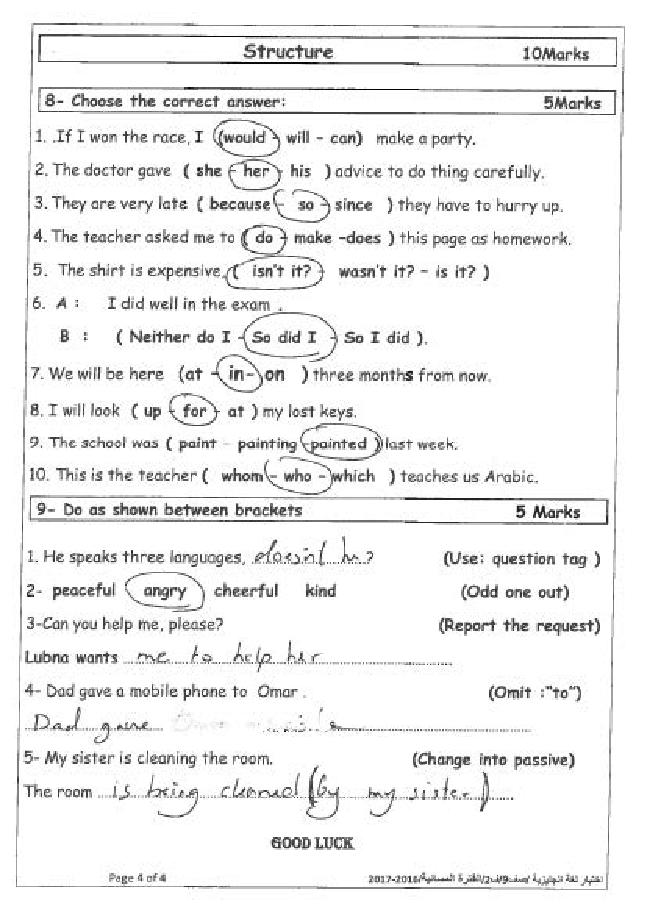 Structure 10Marks
8- Choose the correct answer: 5Marks
1. .If I won the race, I (would - will - can) make a party.
2. The doctor gave ( she - her - his ) advice to do thing carefully.
3. They are very late ( because - so - since ) they have to hurry up.
4. The teacher asked me to ( do - make -does ) this page as homework.
5. The shirt is expensive, ( isn't it? - wasn't it? - is it? )
6. A : I did well in the exam .
B : ( Neither do I - So did I - So I did ).
7. We will be here (at - in- on ) three months from now.
8. I will look ( up - for - at ) my lost keys.
9. The school was ( paint - painting -painted ) last week.
10. This is the teacher ( whom - who - which ) teaches us Arabic.
9- Do as shown between brackets 5 Marks
1. He speaks three languages, doesn't he? (Use: question tag )
2- peaceful angry cheerful kind (Odd one out)
3-Can you help me, please? (Report the request)
Lubna wants me to help her
4- Dad gave a mobile phone to Omar . (Omit :"to")
Dad gave
5- My sister is cleaning the room. (Change into passive)
The room is being cleaned (by my sister)
GOOD LUCK
Page 4 of 4 اختبار لغة انجليزية /صف9/ف2/الفترة المسائية/2016-2017